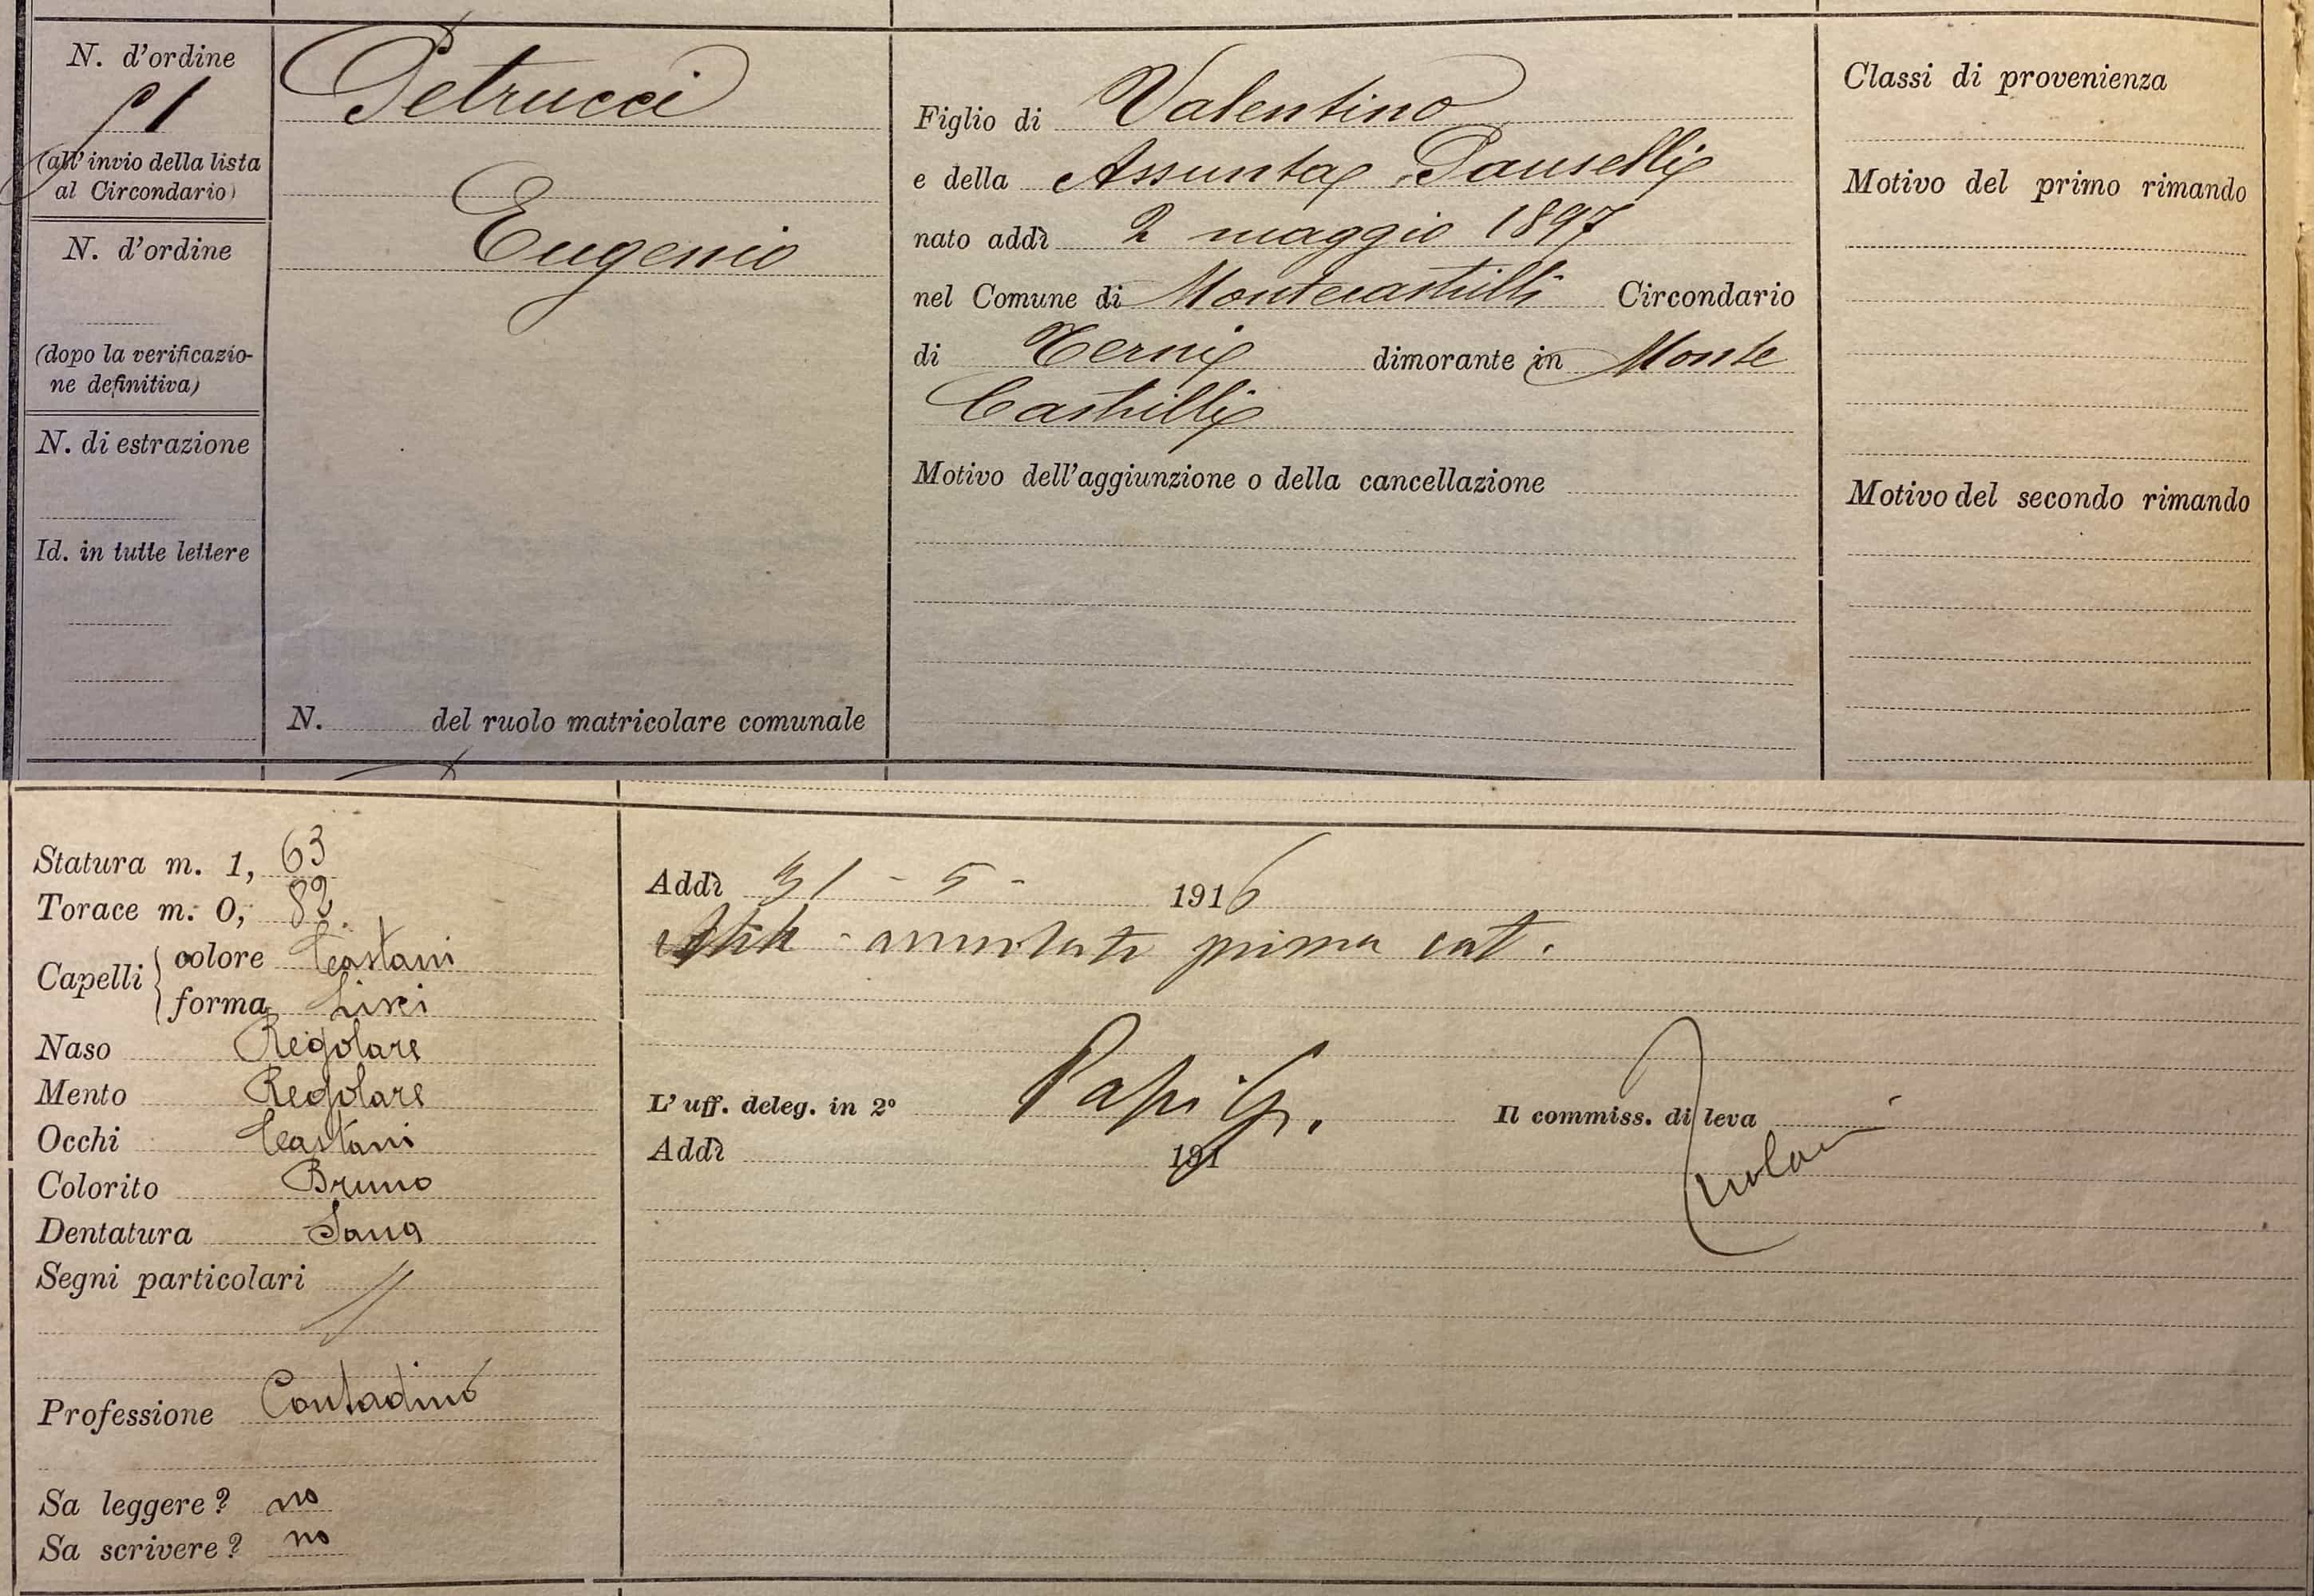 N. d'ordine
(all'invio della lista
al Circondario)
N. d'ordine
(dopo la verificazio-
ne definitiva)
N. di estrazione
Id. in tutte lettere
Petrucci
Eugenio
N. del ruolo matricolare comunale
Figlio di Valentino
e della Assunta Pauselli
nato addì 2 maggio 1897
nel Comune di Montecastrilli Circondario
di Terni dimorante in Monte
Castrilli
Motivo dell'aggiunzione o della cancellazione
Classi di provenienza
Motivo del primo rimando
Motivo del secondo rimando
Statura m. 1, 63
Torace m. 0, 82.
Capelli colore Castani
forma Lisci
Naso Regolare
Mento Regolare
Occhi Castani
Colorito Bruno
Dentatura Sana
Segni particolari //
Professione Contadino
Sa leggere? no
Sa scrivere? no
Addì 31 - 5 - 1916
prima cat.
L'uff. deleg. in 2° Papi G. Il commiss. di leva
Addì 191